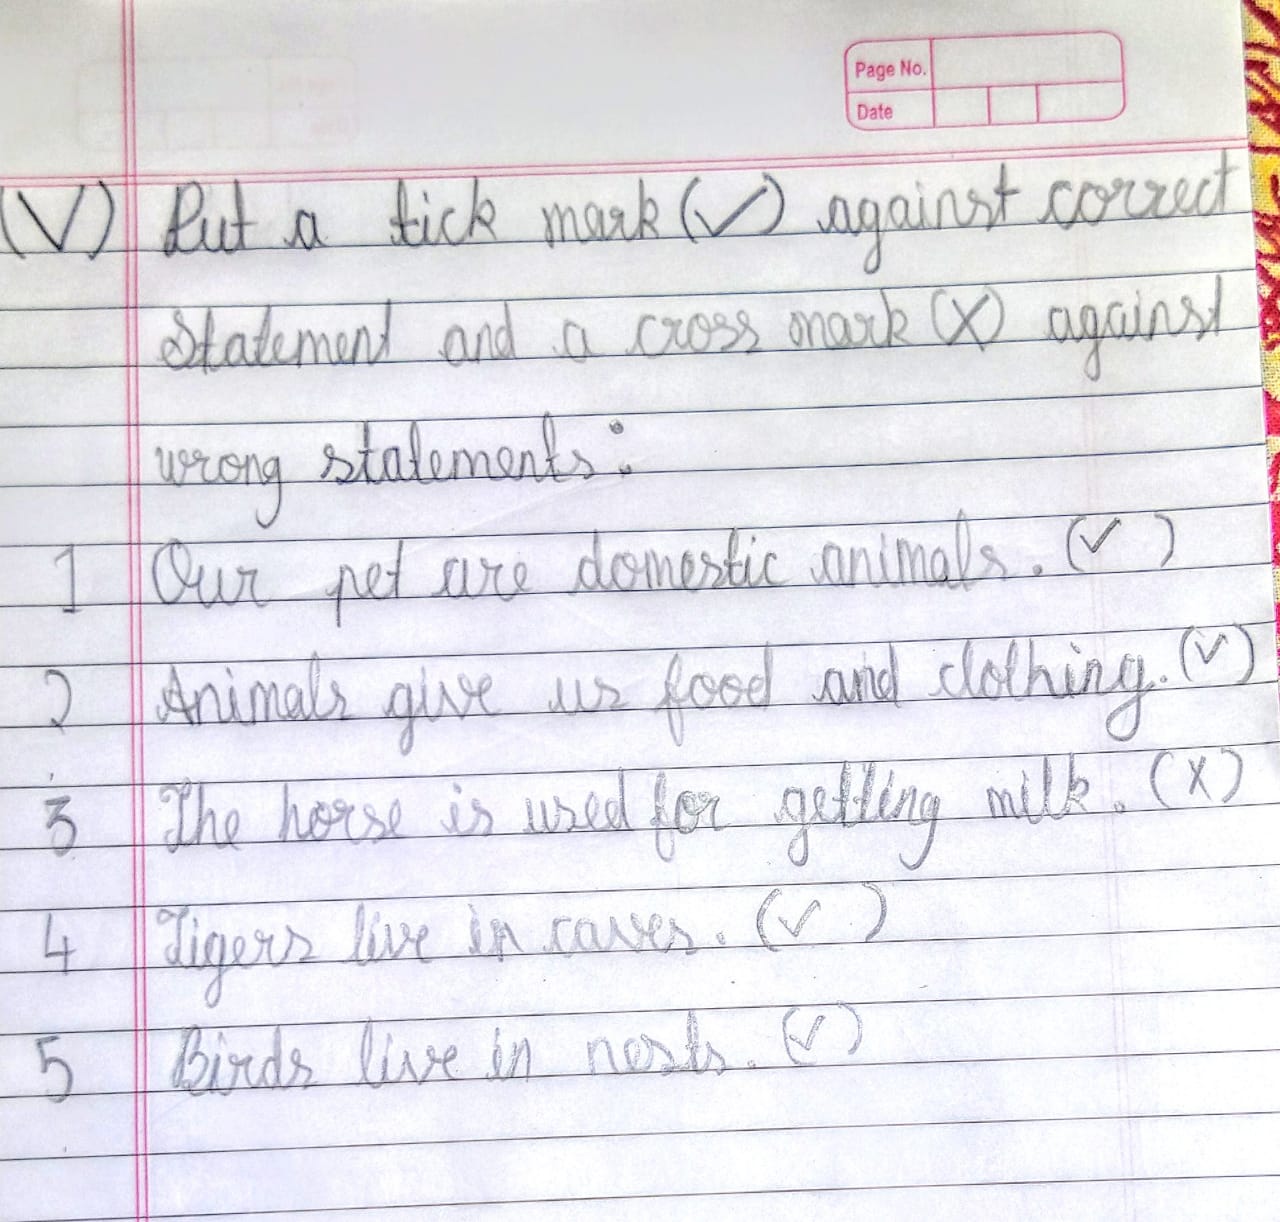 Page No.
Date
(V) Put a tick mark (✓) against correct
Statement and a cross mark (X) against
wrong statements:
1 Our pet are domestic animals. (✓)
2 Animals give us food and clothing. (✓)
3 The horse is used for getting milk. (X)
4 Tigers live in caves. (✓)
5 Birds live in nests. (✓)